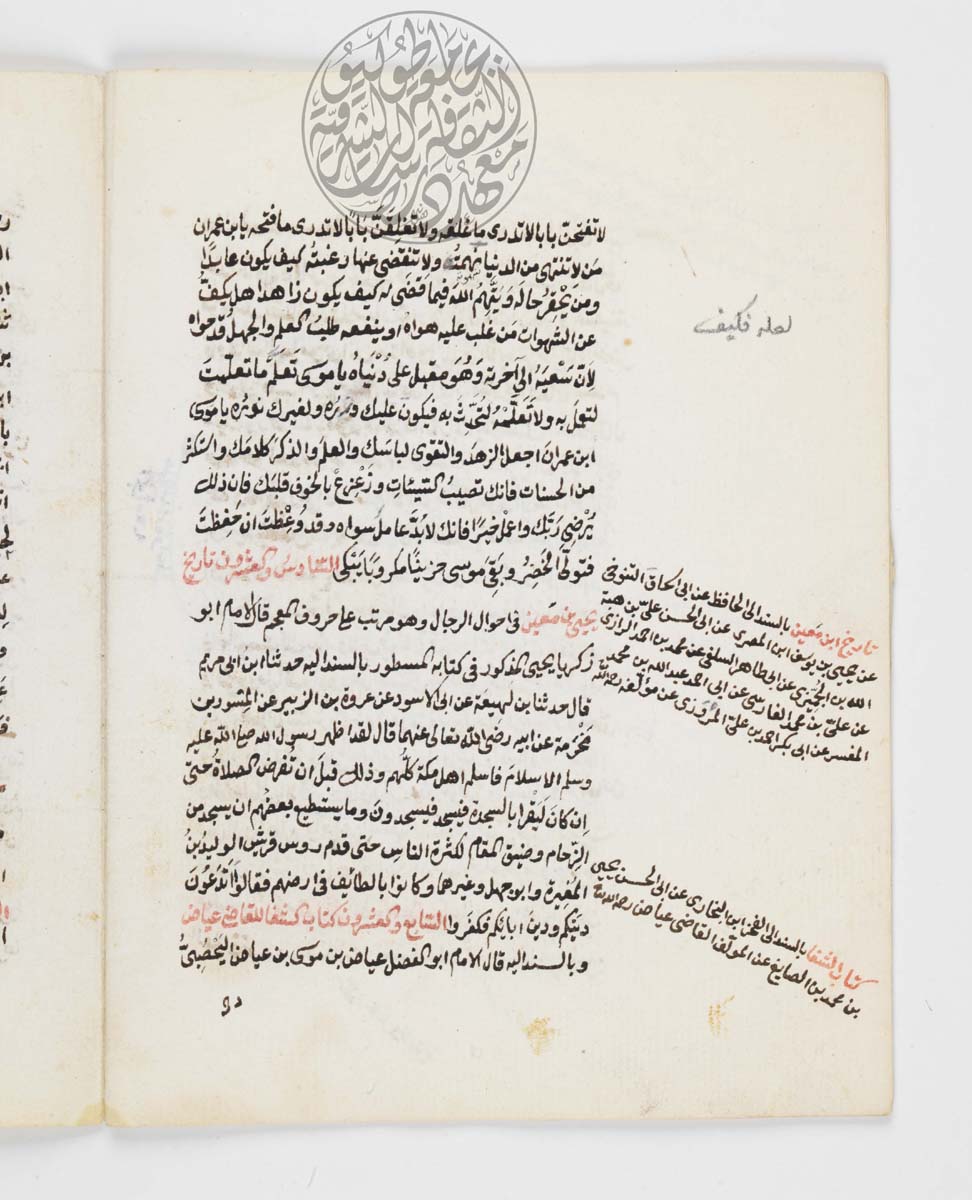 لا تفتحن بابا لا تدرى ما غلقه ولا تغلقن بابا لا تدرى ما فتحه يا ابن عمران
مَن لا تنتهى من الدنيا نهمته ولا تنقضى عنها رغبته كيف يكون عابدًا
ومن يَحقِرُ حاله وَيتَّهِمُ اللهَ فيما قضَى له كيف يكون زاهدا هل يكفُّ
عن الشهوات مَن غلب عليه هواه او ينفعه طلبُ العلم والجهلُ قد حواه
لِاَنّ سَعْيَهُ الى آخرته وَهُوَ مقبل على دُنْيَاهُ يا موسى تَعلَّم ما تعلّمت
لتعمل به ولا تَعَلَّمْهُ لتُحَدِّثَ به فيكونَ عليك وزره ولغيرك نوره يا موسى
ابن عمران اجعل الزهدَ والتقوى لباسك والعلمَ والذكرَ كلامَك واستكثر
من الحسنات فانك تصيبُ السَّيّئاتِ وزَعْزِعْ بالخوف قلبَك فان ذلك
يُرْضى رَبَّك واعمل خيرًا فانك لابدَّ عامل سواه وقد وُعِظْتَ ان حَفِظتَ
فتولّى الخَضِرُ وبَقِىَ موسى حزينًا مكروبا يَبْكى السّادس والعشرون تاريخ
يحيى بن مَعين فى احوال الرجال وهو مرتب على حروف المعجم قال الامام ابو
زكريا يحيى المذكور فى كتابه المسطور بالسند اليه حدثنا ابن ابى مريم
قال حدثنا بن لهيعَة عن ابى الاسود عن عروة بن الزبير عن المِسْوَر بن
مَخْرَمة عن ابيه رضى الله تعالى عنهما قال لقد اظهر رسول الله صلى الله عليه
وسلم الاسلامَ فاسلم اهل مكة كلُّهم وذلك قبل ان تفرض الصلاةُ حتى
اِن كان لَيَقرا بالسجدة فيَسجد فيَسجدونَ وما يستطيع بعضُهم ان يسجد من
الزِّحام وضيق المقام لكثرة الناس حتى قدم روس قريش الوليد بنُ
المُغِيرة وابو جهل وغيرها وكانوا بالطائف فى ارضهم فقالوا اَتَدَعُونَ
دينَكم ودينَ ابائكم فكفَروا السّابع والعشرون كتاب الشفا للقاضى عياض
وبالسند اليه قال الامام ابو الفضل عياض بن موسى بن عياض اليَحْصُبِىُّ
لعله فكيف
تاريخ ابن مَعين بالسند الى الحافظ عن ابى اسحاق التنوخى
عن يحيى بن يوسف ابن المصرى عن ابى الحسن علىّ بن هبة
الله بن الجُمَّيزى عن ابى طاهر السلفى عن محمد بن احمد الرازى
عن علىّ بن محمد الفارسى عن ابى احمد عبد الله بن محمد بن
المفسر عن ابى بكر احمد بن علىّ المَرْوَزى عن مؤلفه رحمه الله
كتاب الشفا بالسند الى الفخر ابن البخارى عن ابى الحسن يحيى
بن محمد بن الصايغ عن المؤلف القاضى عياض رحمه الله
معهد الثقافة والدراسات الشرقية
جامعة طوكيو